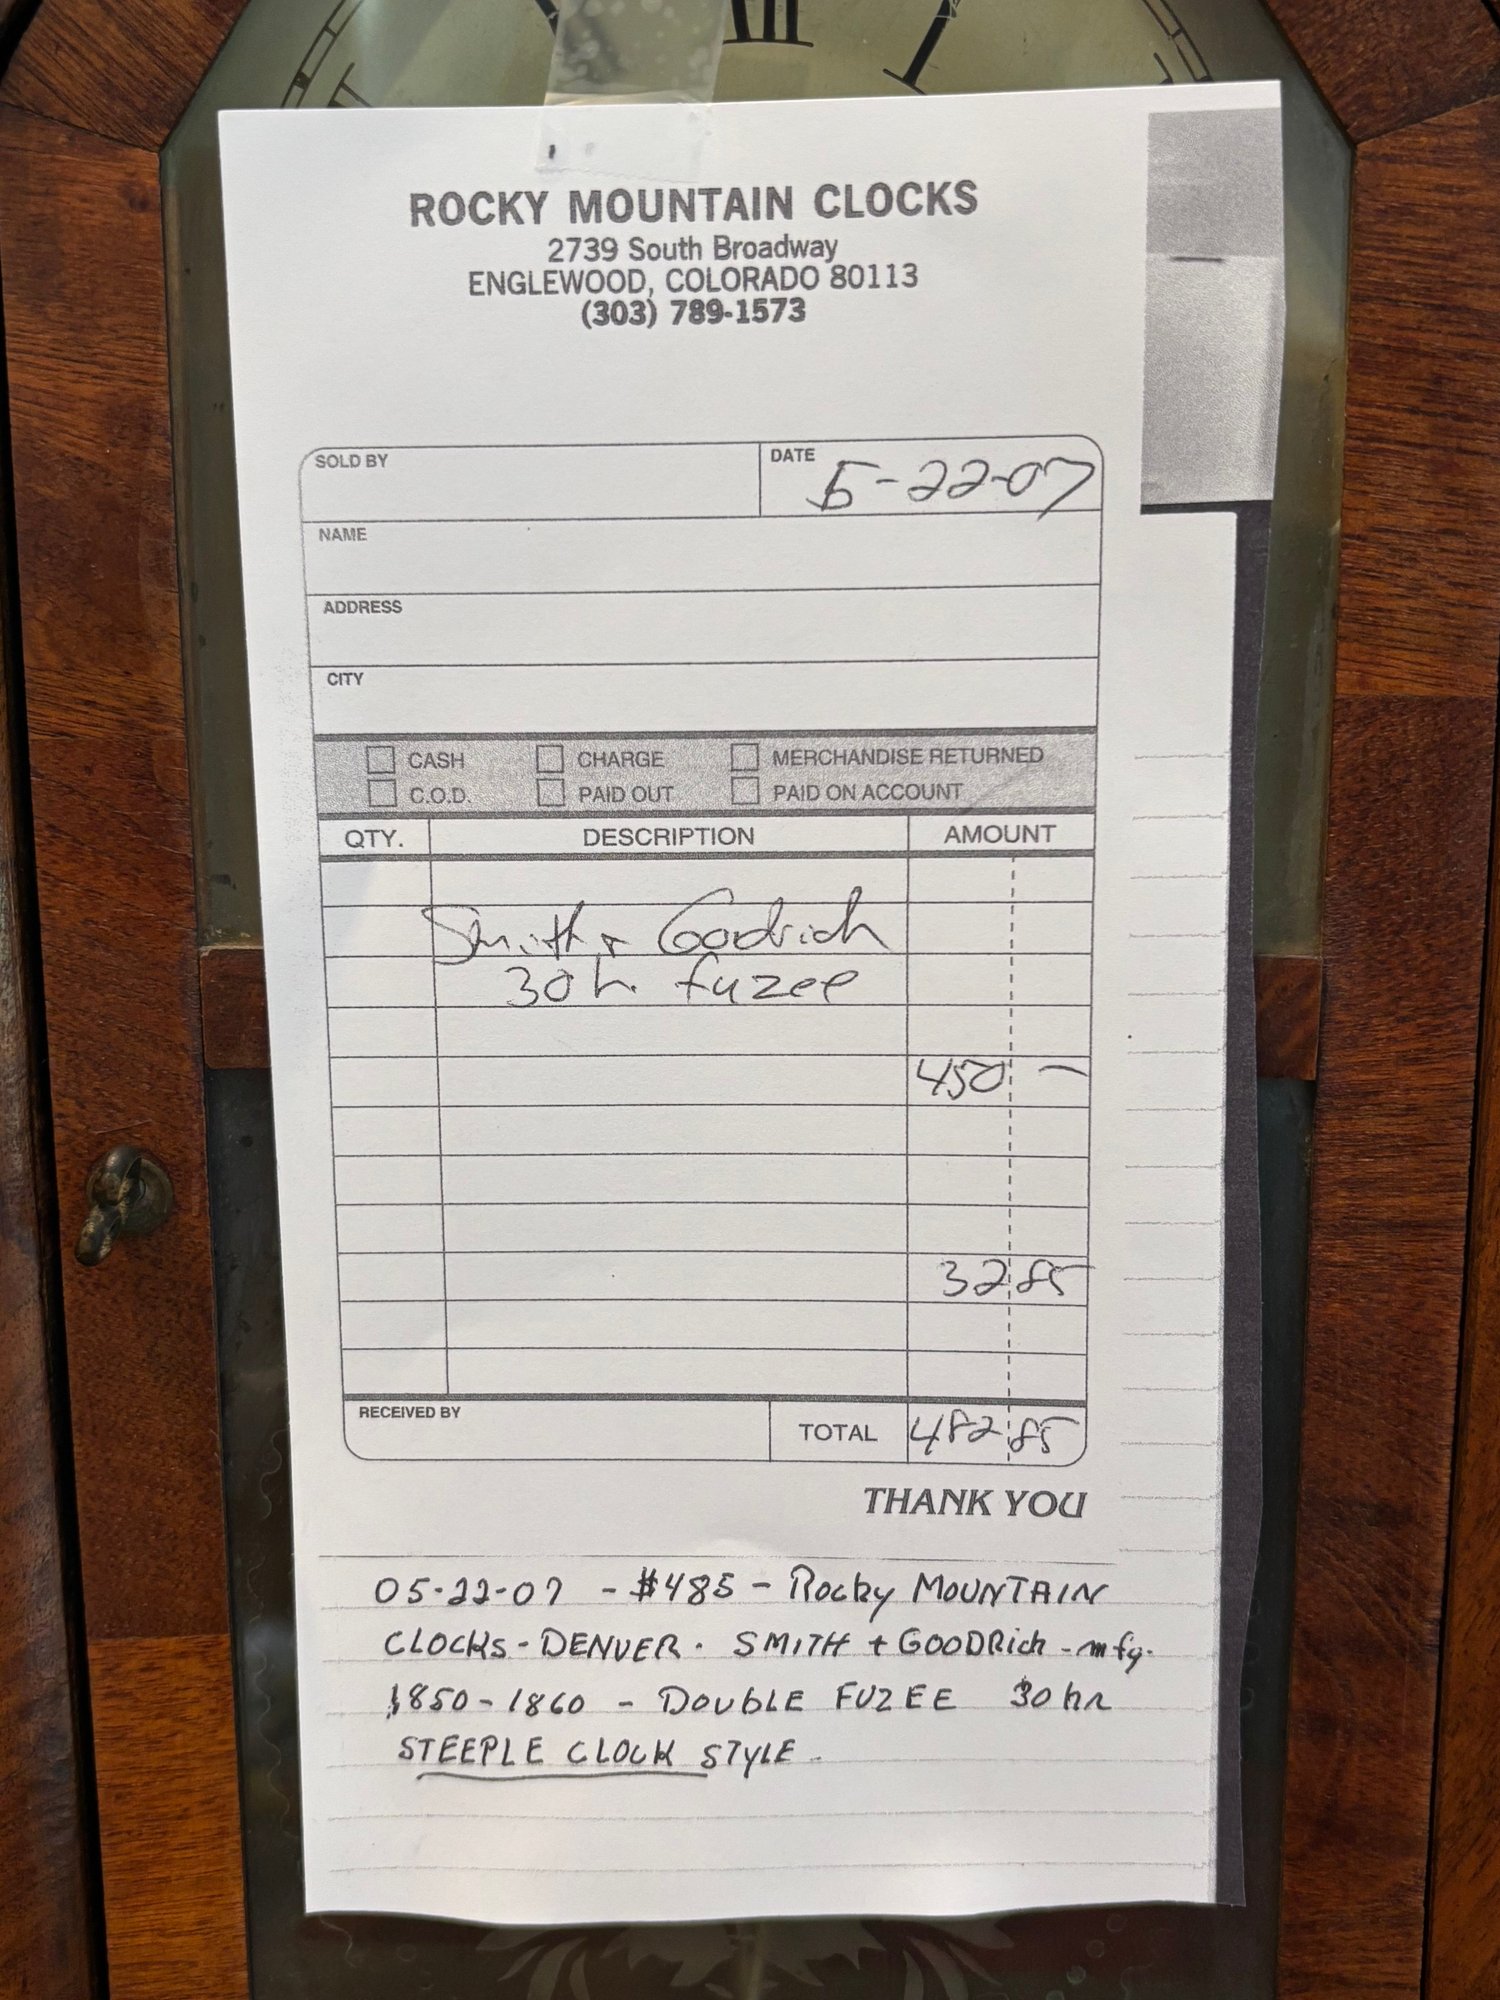 III
ROCKY MOUNTAIN CLOCKS
2739 South Broadway
ENGLEWOOD, COLORADO 80113
(303) 789-1573
SOLD BY
DATE 5-22-07
NAME
ADDRESS
CITY
CASH CHARGE MERCHANDISE RETURNED
C.O.D. PAID OUT PAID ON ACCOUNT
QTY. DESCRIPTION AMOUNT
Smith + Goodrich
30 h. fuzee
450 -
32 85
RECEIVED BY TOTAL 482 85
THANK YOU
05-22-07 - $485 - Rocky MOUNTAIN
CLOCKS - DENVER. SMITH + GOODRich - mfg.
1850-1860 - DOUBLE FUZEE 30 hr
STEEPLE CLOCK STYLE.